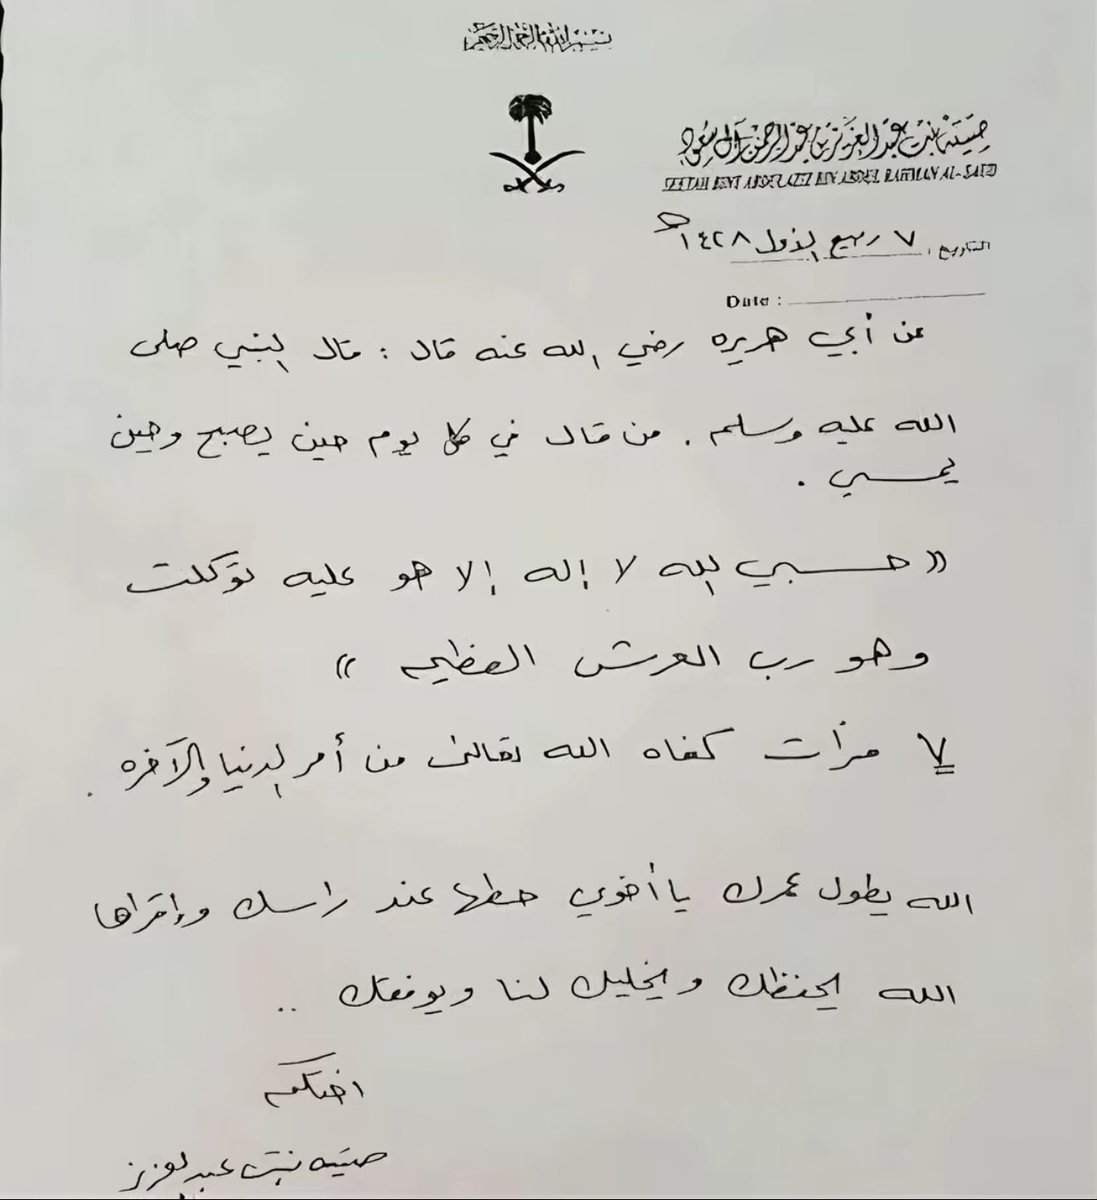 بسم الله الرحمن الرحيم
صيته بنت عبدالعزيز بن عبدالرحمن آل سعود
SEETAH BENT ABDELAZIZ BIN ABDEL RAHMAN AL-SAUD
التاريخ: ٧ ربيع الأول ١٤٢٨هـ
Date :
عن أبي هريره رضي الله عنه قال : قال النبي صلى
الله عليه وسلم . من قال في كل يوم حين يصبح وحين
يمسي .
(( حسبي الله لا إله إلا هو عليه توكلت
وهو رب العرش العظيم ))
٧ مرات كفاه الله تعالى من أمر الدنيا والآخره .
الله يطول عمرك يا أخوي حطها عند راسك وإقراها
الله يحفظك ويخليك لنا ويوفقك ..
اختكم
صيته بنت عبدالعزيز